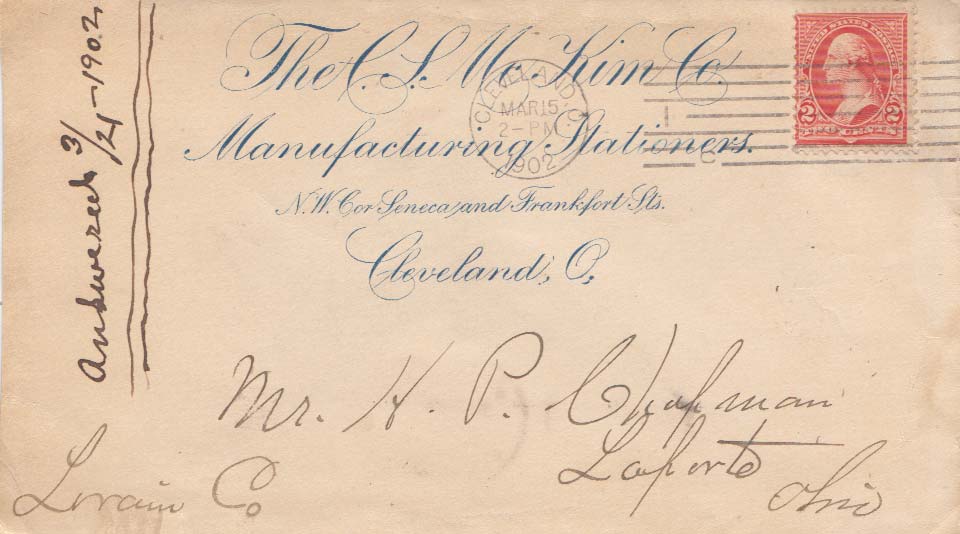 The C. S. McKim Co.
Manufacturing Stationers.
N.W. Cor Seneca and Frankfort Sts.
Cleveland, O.
CLEVELAND, O.
MAR 15
2-PM
1902
1
C
UNITED STATES POSTAGE
2 2
TWO CENTS
Answered 3/21-1902
Mr. H. P. Chapman
Laporte
Lorain Co Ohio